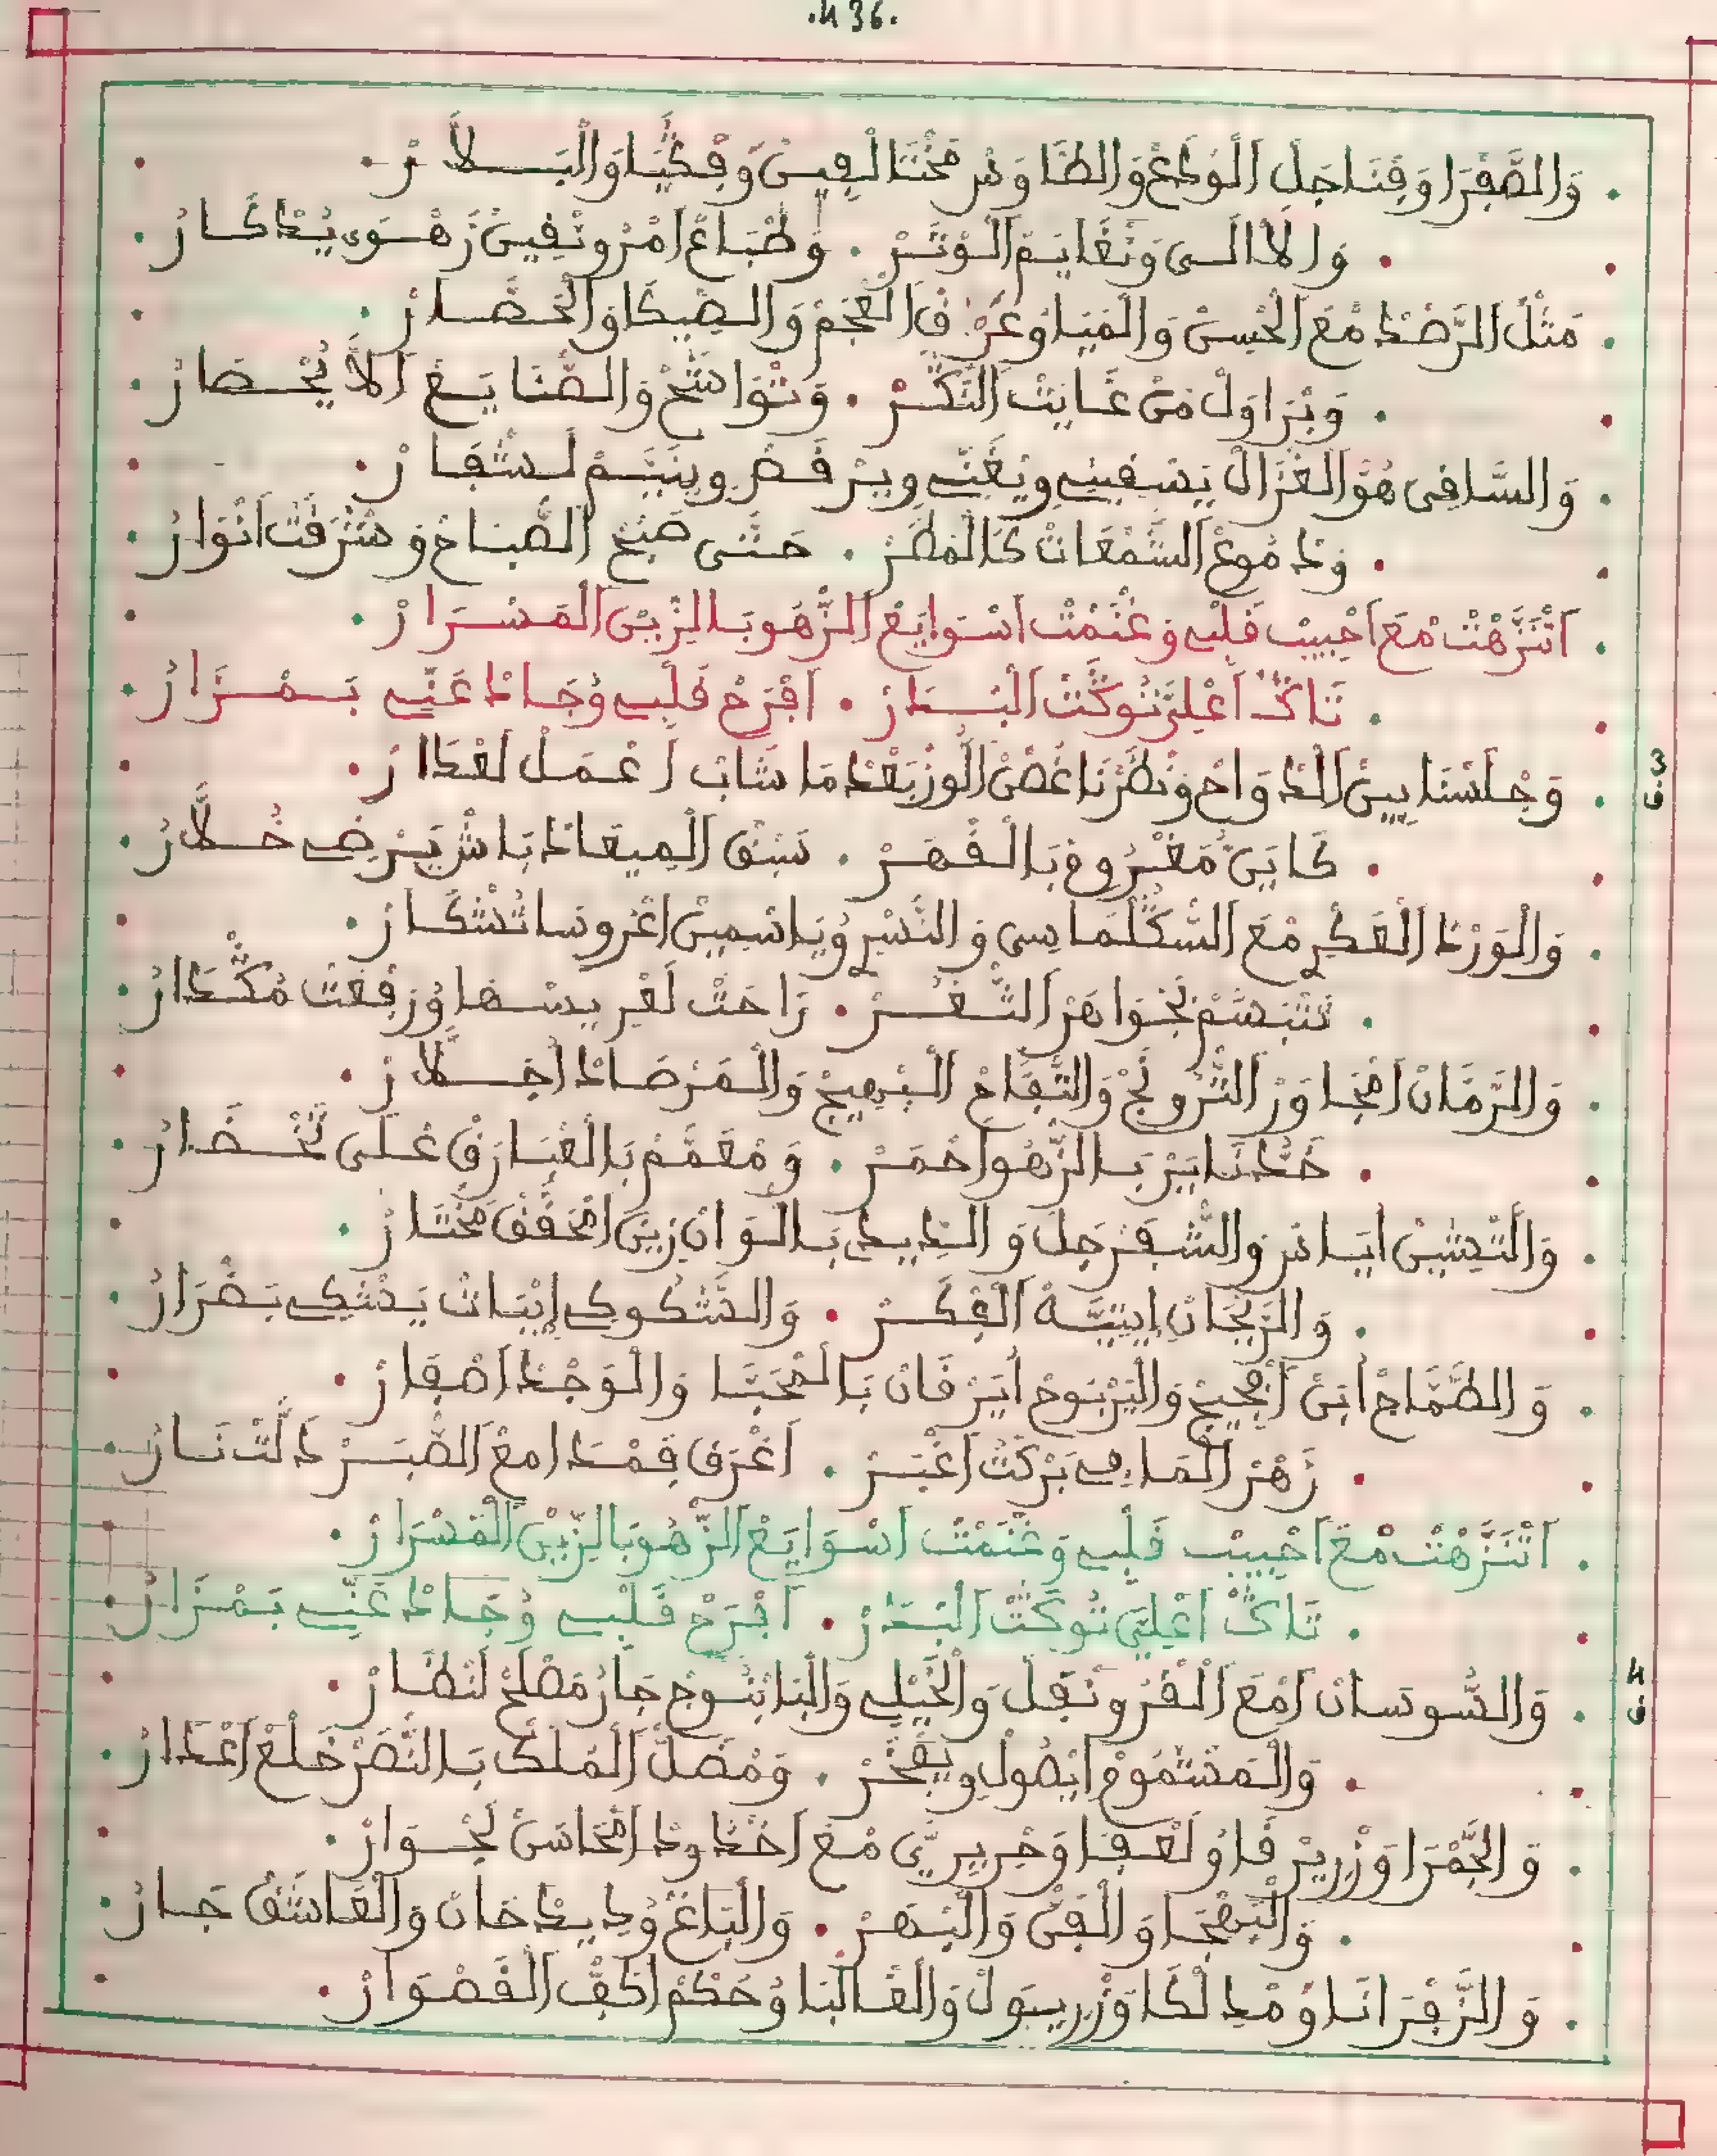 .436.
وَالصَّفْرَا وَقْنَاجَلْ اَلْوَدْعْ وَالطَّاوَسْ مَخْتَالْفِينْ وَفْكِيَّا وَالْبَــلَّارْ
وَالَالَـى وَنْغَايَمْ اَلْوْتَرْ . وَطْبَاعْ اَمْرُونْقِينْ زَهْـوَى يُدْكَـارْ
مَثْلْ اَلرَّصْدْ مْعَ اَلْحْسِينْ وَالْمَيَا وُ فْ اَلْعْجَمْ وَالـصِّيكَا وَالْحْصَـارْ
وَبْرَاوَلْ مَنْ غَايَتْ اَلنَّكْـرْ . وَتْوَاشَحْ وَالصّْنَايَـعْ اَلَّا يُحْـصَـارْ
وَالسَّاقِى هُوَّ اَلغْزَالْ يَسْقِينِي وِيْغَنِّي وِيَرْقَـصْ وِينَيَّـمْ لَـشْفَـارْ
وَدْمُوعْ اَلشَّمْعَاتْ كَالْمْطَـرْ . حَتَّـى صَبْحْ اَلصّْبَاحْ وَشَرْقَتْ اَنْوَارْ
اَتْنَزَّهْتْ مْعَ اَحْبِيبْ قَلْبِي وَغْنَمْتْ اَسْوَايَعْ اَلزّْهُو بَالزِّينْ اَلْمَسْـرَارْ
تَاكْ اَعْلِيَّ نُوكْتْ اَلْبْـدَرْ . اَفْرَحْ قَلْبِي وُجَـادْ عَنِّي بَـمْـزَارْ
3
ق
وَجْلَسْنَا بِينْ اَلدْوَاحْ وَنْظَرْنَا غُصْنْ اَلُّوزْ بَعْدْ مَا شَابْ اَعْمَـلْ لَعْدَارْ
كَايَنْ مَغْرُوفْ بَالْـقْـهَـرْ . سَبْقْ اَلْمِيعَادْ بَاشْ يَرْضِي خُـلَّارْ
وَالْوَرْدْ اَلْعَكْرِ مْعَ اَلسَّكْلْمَاسِى وَالنَّسْرِ وُيَاسْمِينْ اَعْرُوسَا تُشْكَـارْ
تَتْبَسَّمْ بَجْوَاهَرْ اَلثّْـغَـرْ . رَاحَتْ لَغْرِيسْهَا وُرَفْعَتْ مَكْدَارْ
وَالرَّمَّانْ اَمْجَـاوَرْ اَلتُّرُونْجْ وَالتَّفَّاحْ اَلْبْهِيجْ وَالْمَرْصَـادْ اَخْــلَّارْ
خَدُّ نَايَرْ بَـالزّْهُو اَحْمَرْ . وَمْعَمَّمْ بَالْغْبَارَقْ عْلَى تَّخْـضَـارْ
وَالتَّحْتِينْ وَالسَّفَرْجَلْ وَ بَالَـوَانْ زِينْ اَمْحَقَّقْ مَخْتَـارْ
وَالرَّيْحَانْ اِيتِيَّـهْ اَلْفْكَـرْ . وَالـشَّكْوِكِي اِيْبَاتْ يَشْتْكِي بَـضْرَارْ
وَالطَّمَّاحْ وَالْبَرْبَوحْ اَيَرْقَانْ بَالْمْحَبَّـا وَالْـوَجْدْ اَصْفَـارْ
زَهْرْ اَلْمَـا فِي بَرْكْتْ اَعْبَـرْ . اَغْرَقْ فَمْـدَامَعْ اَلصّْبَـرْ دَلَّتْ نَـارْ
اَتْنَزَّهْتْ مْعَ اَحْبِيبْ قَلْبِي وَغْنَمْتْ اَسْوَايَعْ اَلزّْهُو بَالزِّينْ اَلْمَسْرَارْ
تَاكْ اَعْلِيَّ نُوكْتْ اَلْبْـدَرْ . اَفْرَحْ قَلْبِي وُجَـادْ عَنِّي بَـمْـزَارْ
4
ق
وَالسُّوسَانْ اَمْعَ اَلْقْرُونْفَلْ وَالْخَيْلِي وَالْبَابْنُـوجْ جَـارْ مَصْلَحْ لَنْظَـارْ
وَالْـمَشْمُومْ اَيْصُولْ وِيفْخَـرْ . وَمْصَلْ اَلْمْلَكْ بَـالنّْصَرْ خَلْعْ اَعْدَارْ
وَالْجَمْرَا وَزْرِيرْقَا وُلَعْفَـا وَحْرِيرِيَّ مْعَ اَخْدُودْ اَمْحَاسَنْ لَجْـوَارْ
وَالْبَهْجَـا وَالْفَنّْ وَالْبْـهَـرْ . وَالْبَاغْ وُدِيدْحَانْ وَالْعَاشَقْ جَـارْ
وَالزَّفْرَانَـا وُمْدِلْكَا وَزْرِيبَولْ وَالْغَـالْبَا وُحَكْمْ اَكَفّْ اَلْقَصْـوَارْ